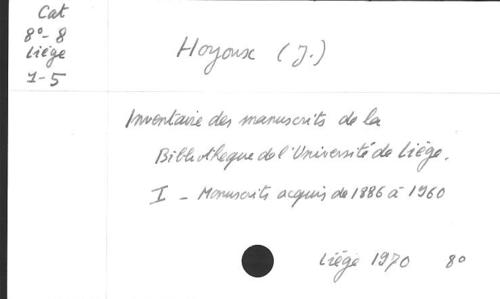 Cat
8°-8
Liége
1-5
Hoyoux (J.)
Inventaire des manuscrits de la
Bibliothèque de l'Université de Liége.
I - Manuscrits acquis de 1886 à 1960
Liége 1970 8°